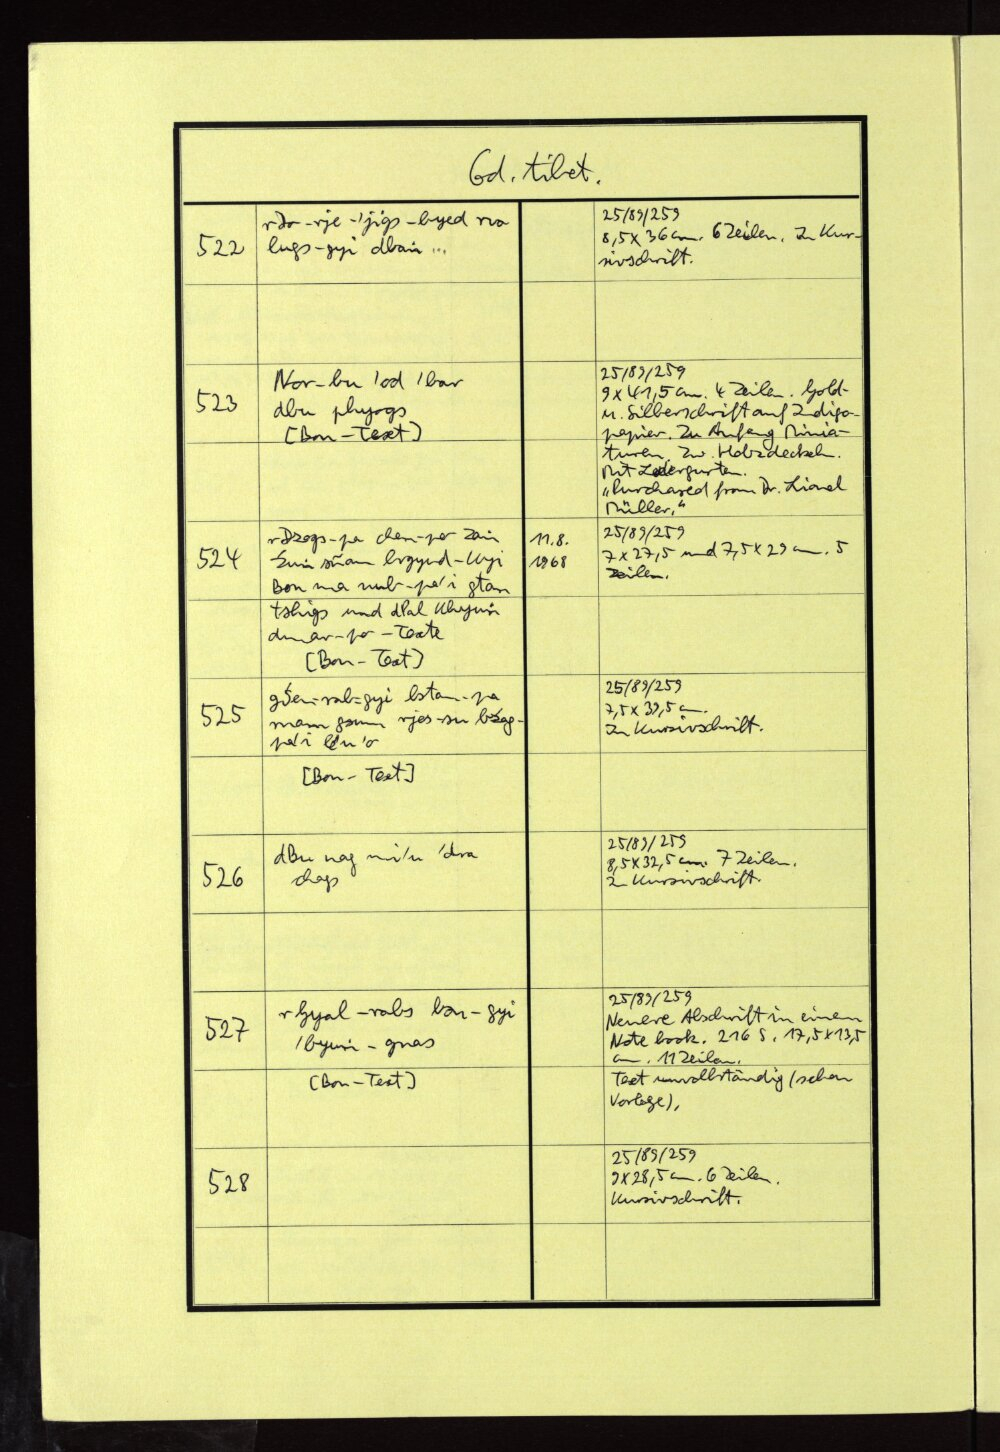 Cod. tibet.
522
rDo-rje-'jigs-byed rva
lugs-gyi dbaṅ ...
25/89/259
8,5 x 36 cm. 6 Zeilen. In Kur-
sivschrift.
523
Nor-bu 'od 'bar
dbu phyogs
[Bon-Text]
25/89/259
9 x 41,5 cm. 4 Zeilen. Gold-
u. Silberschrift auf Indigo-
papier. Zu Anfang Minia-
turen. Zw. Holzdeckeln.
Mit Ledergurten.
„Purchased from Dr. Lionel
Müller."
524
rDzogs-pa chen-po Zaṅ
Źuṅ sñan brgyud-kyi
Bon ma nub-pa'i gtan
tshigs und dPal Khyuṅ
dmar-po-Texte
[Bon-Text]
11.8.
1968
25/89/259
7 x 27,5 und 7,5 x 29 cm. 5
Zeilen.
525
gŚen-rab-gyi bstan-pa
rnam gsum rjes-su bźag-
pa'i le'u'o
[Bon-Text]
25/89/259
7,5 x 39,5 cm.
In Kursivschrift.
526
dBu nag mi'u 'dra
chags
25/89/259
8,5 x 32,5 cm. 7 Zeilen.
In Kursivschrift.
527
rGyal-rabs bon-gyi
'byuṅ-gnas
[Bon-Text]
25/89/259
Neuere Abschrift in einem
Note book. 216 S. 17,5 x 13,5
cm. 11 Zeilen.
Text unvollständig (schon
Vorlage).
528
25/89/259
9 x 28,5 cm. 6 Zeilen.
Kursivschrift.